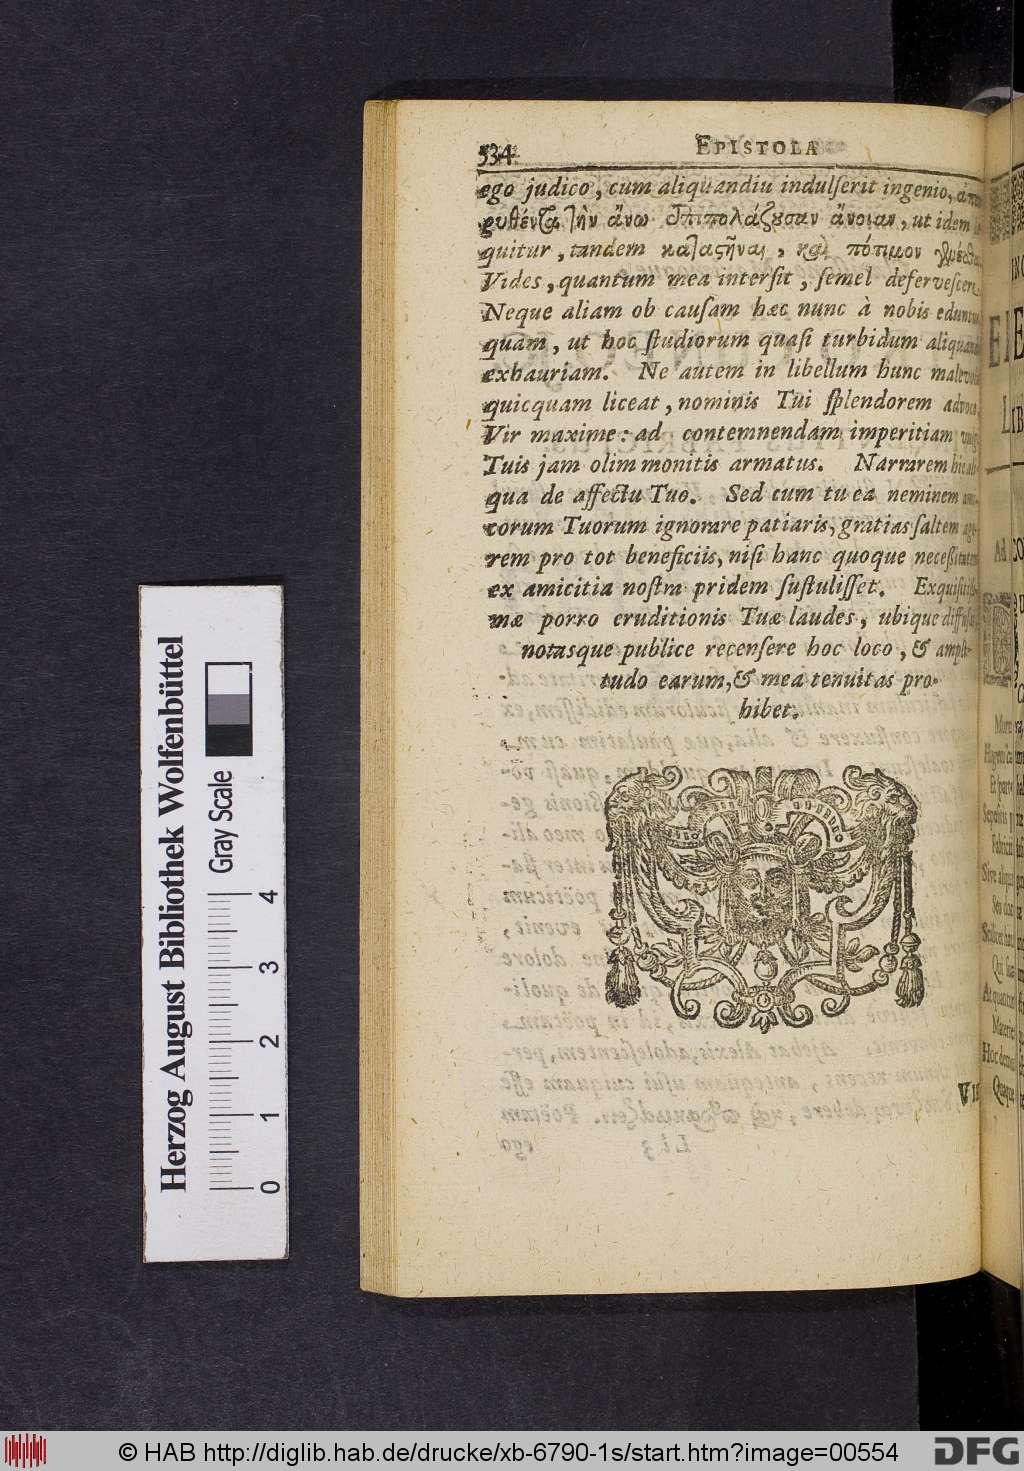 534
EPISTOLA
ego judico, cum aliquandiu indulserit ingenio,
ρυθένζα τὴν ἄνω ἐπιπολάζουσαν ἄνοιαν, ut idem
quitur, tandem καταςῆναι, καὶ πότιμον
Vides, quantum mea intersit, semel defervescere.
Neque aliam ob causam hæc nunc à nobis
quam, ut hoc studiorum quasi turbidum
exhauriam. Ne autem in libellum hunc
quicquam liceat, nominis Tui splendorem
Vir maxime: ad contemnendam imperitiam
Tuis jam olim monitis armatus. Narrarem hic
qua de affectu Tuo. Sed cum tu ea neminem
corum Tuorum ignorare patiaris, gratias saltem age-
rem pro tot beneficiis, nisi hanc quoque necessitatem
ex amicitia nostra pridem sustulisset. Exquisitis-
mæ porro eruditionis Tuæ laudes, ubique
notasque publice recensere hoc loco, & ampli-
tudo earum, & mea tenuitas pro-
hibet.
Herzog August Bibliothek Wolfenbüttel
Gray Scale
0 1 2 3 4
© HAB http://diglib.hab.de/drucke/xb-6790-1s/start.htm?image=00554
DFG